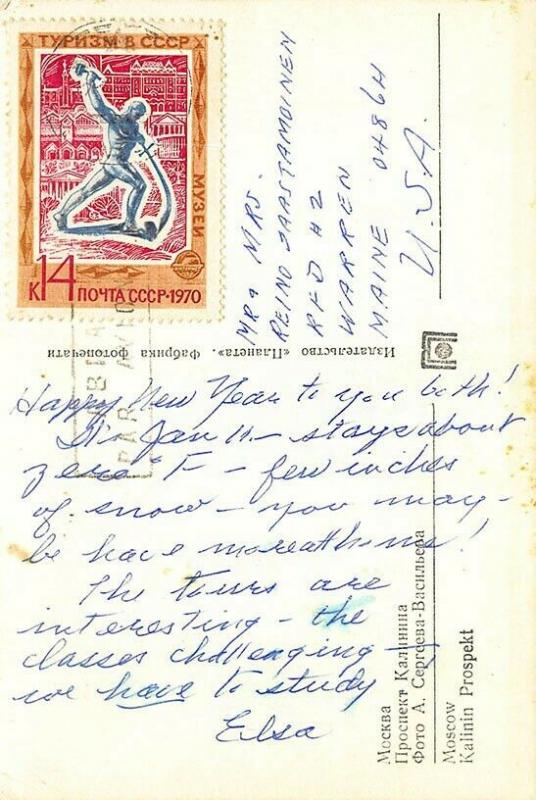 ТУРИЗМ В СССР
МУЗЕИ
К14 ПОЧТА СССР·1970
PAR AVION
MR & MRS.
REINO SAASTAMOINEN
RFD #2
WARREN
MAINE 04864
U.S.A.
Издательство «Планета». Фабрика фотопечати
Happy New Year to you both!
It's Jan 11 - stays about
zero °F - few inches
of snow - you may-
be have more at home!
The tours are
interesting - the
classes challenging -
we have to study
Elsa
Москва
Проспект Калинина
Фото А. Сергеева-Васильева
Moscow
Kalinin Prospekt